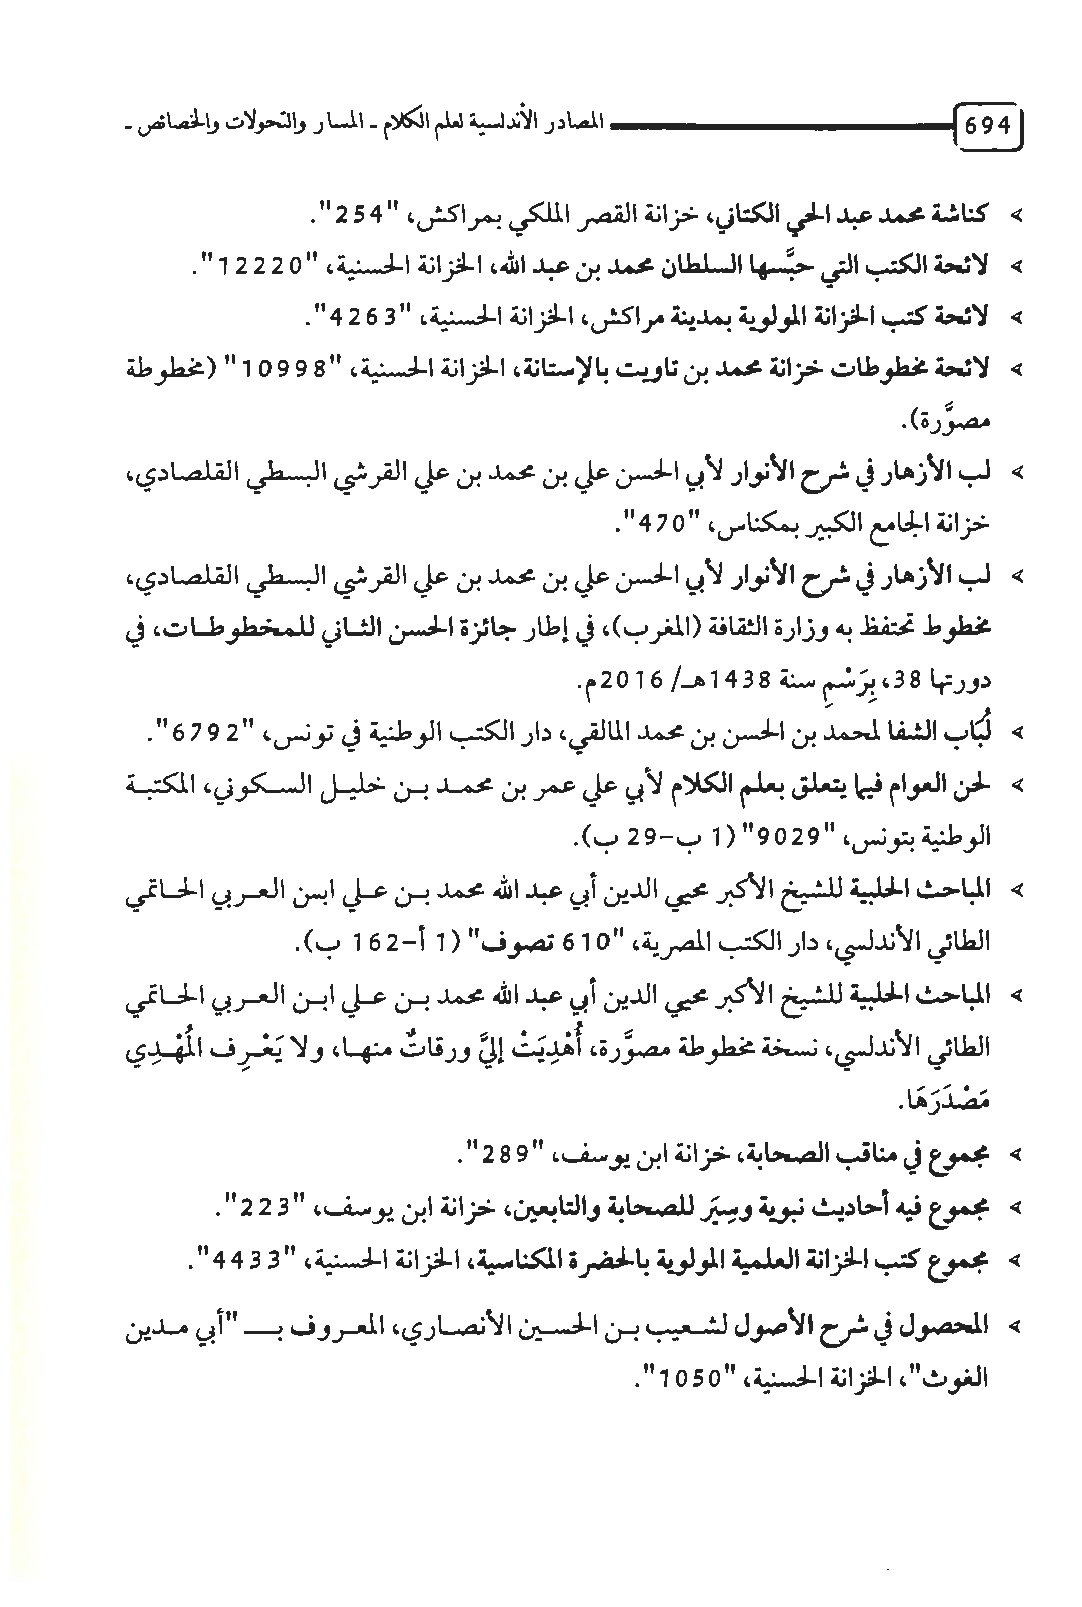 694 المصادر الأندلسية لعلم الكلام ـ المسار والتحولات والخصائص ـ
➢ كناشة محمد عبد الحي الكتاني، خزانة القصر الملكي بمراكش، "254".
➢ لائحة الكتب التي حبَّسها السلطان محمد بن عبد الله، الخزانة الحسنية، "12220".
➢ لائحة كتب الخزانة المولوية بمدينة مراكش، الخزانة الحسنية، "4263".
➢ لائحة مخطوطات خزانة محمد بن تاويت بالإستانة، الخزانة الحسنية، "10998" (مخطوطة
مصوَّرة).
➢ لب الأزهار في شرح الأنوار لأبي الحسن علي بن محمد بن علي القرشي البسطي القلصادي،
خزانة الجامع الكبير بمكناس، "470".
➢ لب الأزهار في شرح الأنوار لأبي الحسن علي بن محمد بن علي القرشي البسطي القلصادي،
مخطوط تحتفظ به وزارة الثقافة (المغرب)، في إطار جائزة الحسن الثاني للمخطوطات، في
دورتها 38، بِرَسْمِ سنة 1438هـ/ 2016م.
➢ لُبَاب الشفا لمحمد بن الحسن بن محمد المالقي، دار الكتب الوطنية في تونس، "6792".
➢ لحن العوام فيما يتعلق بعلم الكلام لأبي علي عمر بن محمد بن خليل السكوني، المكتبة
الوطنية بتونس، "9029" (1 ب-29 ب).
➢ المباحث الحلبية للشيخ الأكبر محيي الدين أبي عبد الله محمد بن علي ابن العربي الحاتمي
الطائي الأندلسي، دار الكتب المصرية، "610 تصوف" (1 أ-162 ب).
➢ المباحث الحلبية للشيخ الأكبر محيي الدين أبي عبد الله محمد بن علي ابن العربي الحاتمي
الطائي الأندلسي، نسخة مخطوطة مصوَّرة، أُهْدِيَتْ إليَّ ورقاتٌ منها، ولا يَعْرِف المُهْدِي
مَصْدَرَهَا.
➢ مجموع في مناقب الصحابة، خزانة ابن يوسف، "289".
➢ مجموع فيه أحاديث نبوية وسِيَر للصحابة والتابعين، خزانة ابن يوسف، "223".
➢ مجموع كتب الخزانة العلمية المولوية بالحضرة المكناسية، الخزانة الحسنية، "4433".
➢ المحصول في شرح الأصول لشعيب بن الحسين الأنصاري، المعروف بـ "أبي مدين
الغوث"، الخزانة الحسنية، "1050".